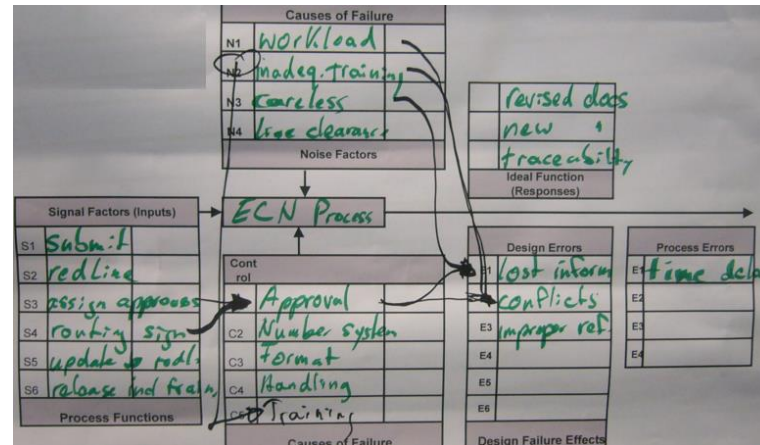 Causes of Failure
N1 workload
N2 inadeq. training
N3 careless
N4 line clearance
Noise Factors
revised docs
new "
traceability
Ideal Function
(Responses)
Signal Factors (Inputs)
S1 submit
S2 redline
S3 assign approvers
S4 routing sign
S5 update
S6 release
Process Functions
ECN Process
Cont
rol
Approval
C2 Number system
C3 Format
C4 Handling
C5 Training
Causes of Failure
Design Errors
E1 lost inform
conflicts
E3 improper ref.
E4
E5
E6
Design Failure Effects
Process Errors
E1 time dela
E2
E3
E4